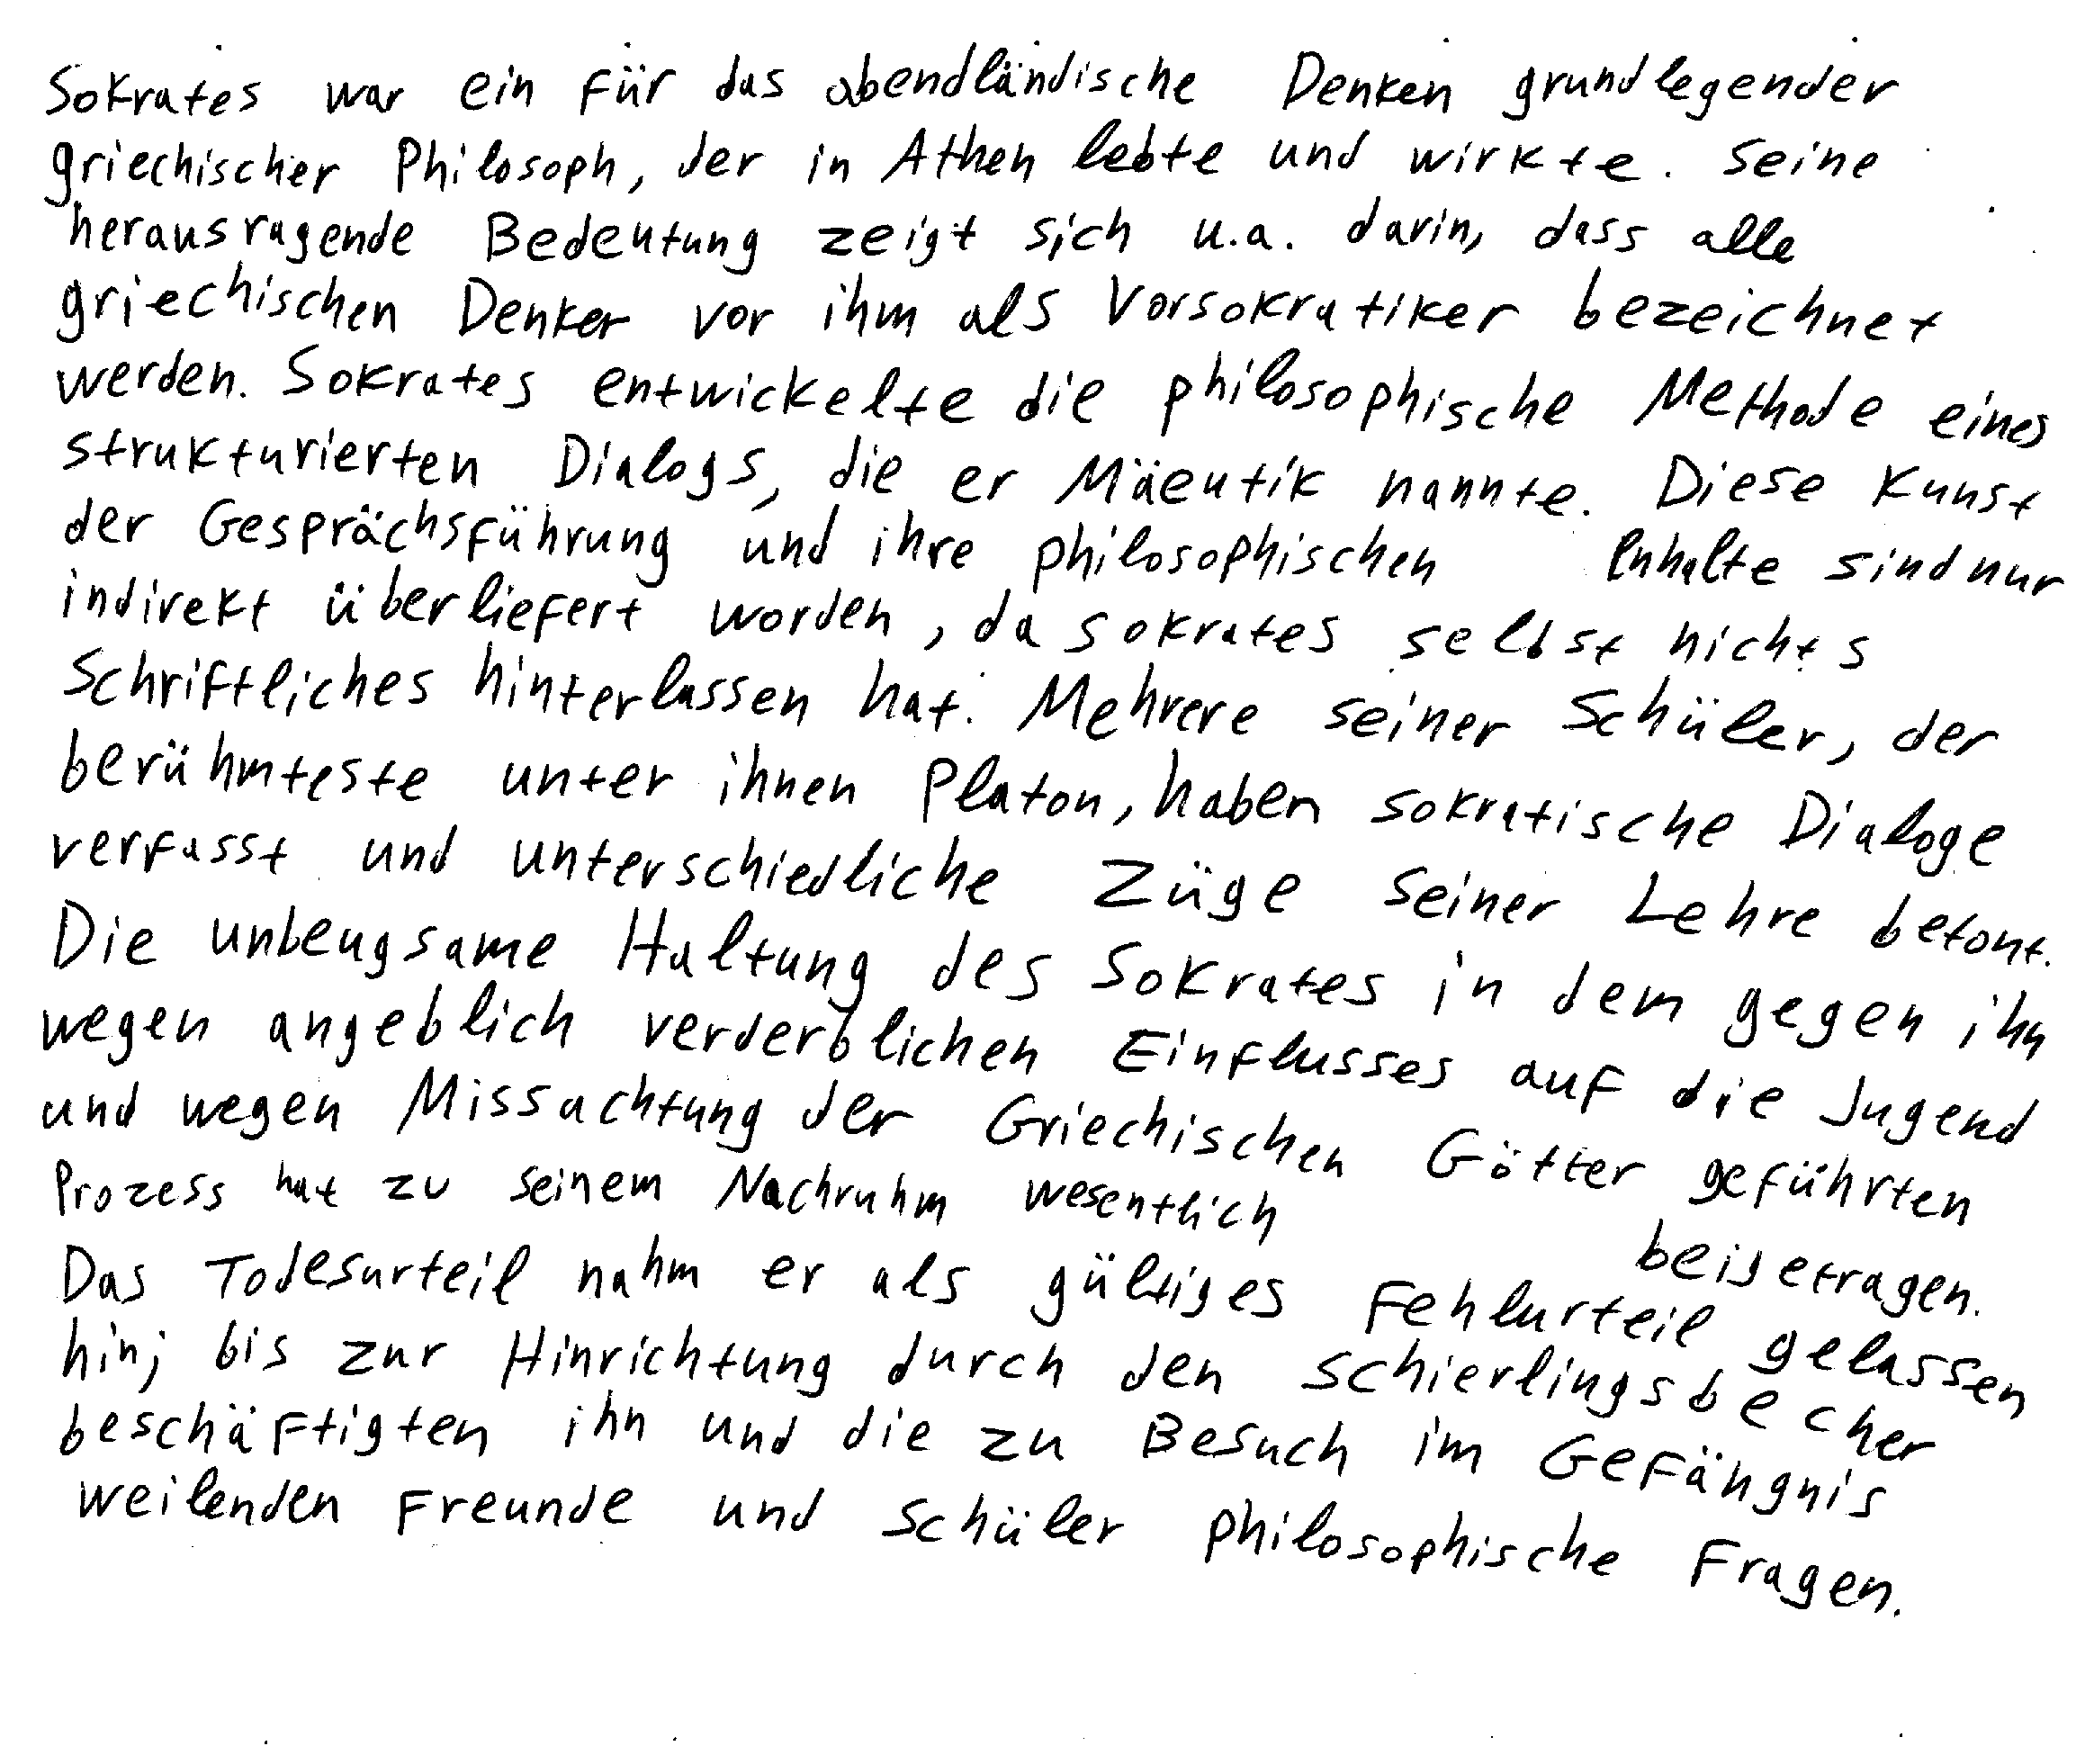 Sokrates war ein für das abendländische Denken grundlegender
griechischer Philosoph, der in Athen lebte und wirkte. Seine
herausragende Bedeutung zeigt sich u.a. darin, dass alle
griechischen Denker vor ihm als Vorsokratiker bezeichnet
werden. Sokrates entwickelte die philosophische Methode eines
strukturierten Dialogs, die er Mäeutik nannte. Diese Kunst
der Gesprächsführung und ihre philosophischen Inhalte sind nur
indirekt überliefert worden, da Sokrates selbst nichts
Schriftliches hinterlassen hat. Mehrere seiner Schüler, der
berühmteste unter ihnen Platon, haben sokratische Dialoge
verfasst und unterschiedliche Züge seiner Lehre betont.
Die unbeugsame Haltung des Sokrates in dem gegen ihn
wegen angeblich verderblichen Einflusses auf die Jugend
und wegen Missachtung der Griechischen Götter geführten
Prozess hat zu seinem Nachruhm wesentlich beigetragen.
Das Todesurteil nahm er als gültiges Fehlurteil gelassen
hin; bis zur Hinrichtung durch den Schierlingsbecher
beschäftigten ihn und die zu Besuch im Gefängnis
weilenden Freunde und Schüler philosophische Fragen.